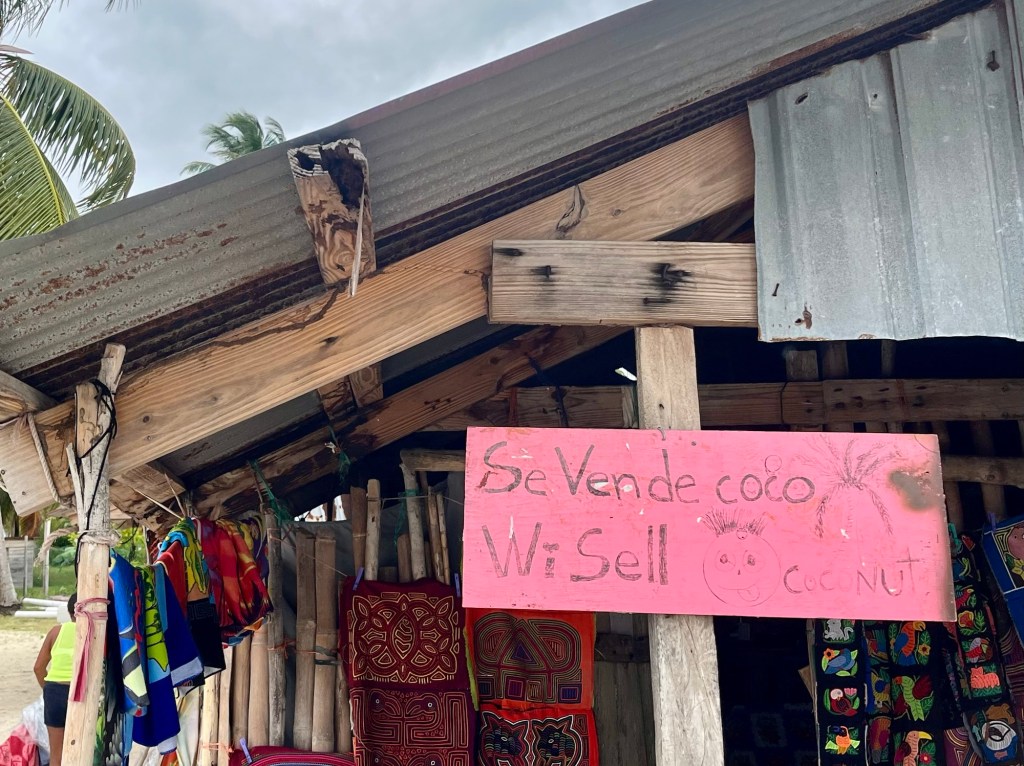 Se Vende coco
Wi Sell COCONUT